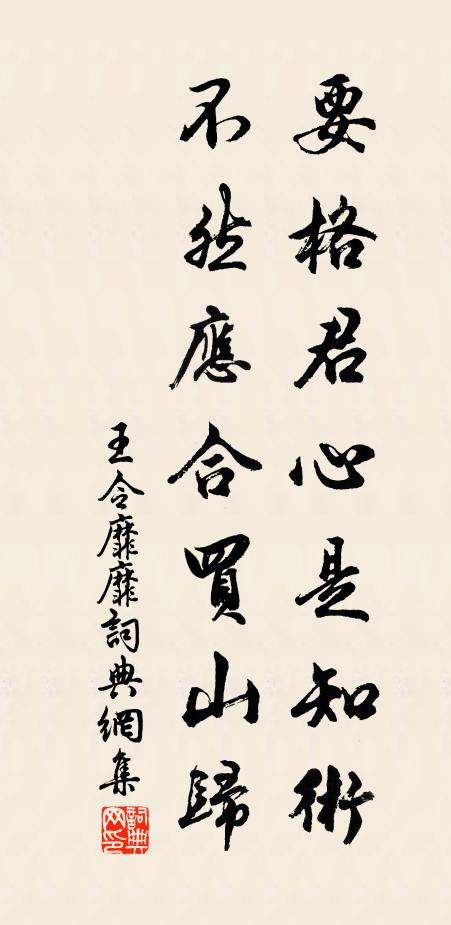 要格君心是知術
不然應合買山歸
王令靡靡詞典網集
詞典網印